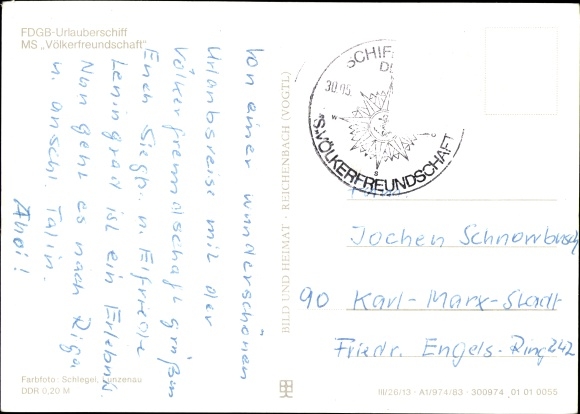 FDGB-Urlauberschiff
MS „Völkerfreundschaft"
Von einer wunderschönen
Urlaubsreise mit der
Völkerfreundschaft grüßen
Euch Siegfr. u. Elfriede
Leningrad ist ein Erlebnis.
Nun geht es nach Riga
u. anschl. Talin.
Ahoi!
Farbfoto: Schlegel, Lunzenau
DDR 0,20 M
BILD UND HEIMAT · REICHENBACH (VOGTL)
SCHIF
30.05.
"VÖLKERFREUNDSCHAFT
Jochen Schnombusch
90 Karl-Marx-Stadt
Friedr. Engels-Ring 242
III/26/13 · A1/974/83 · 300974 01 01 0055